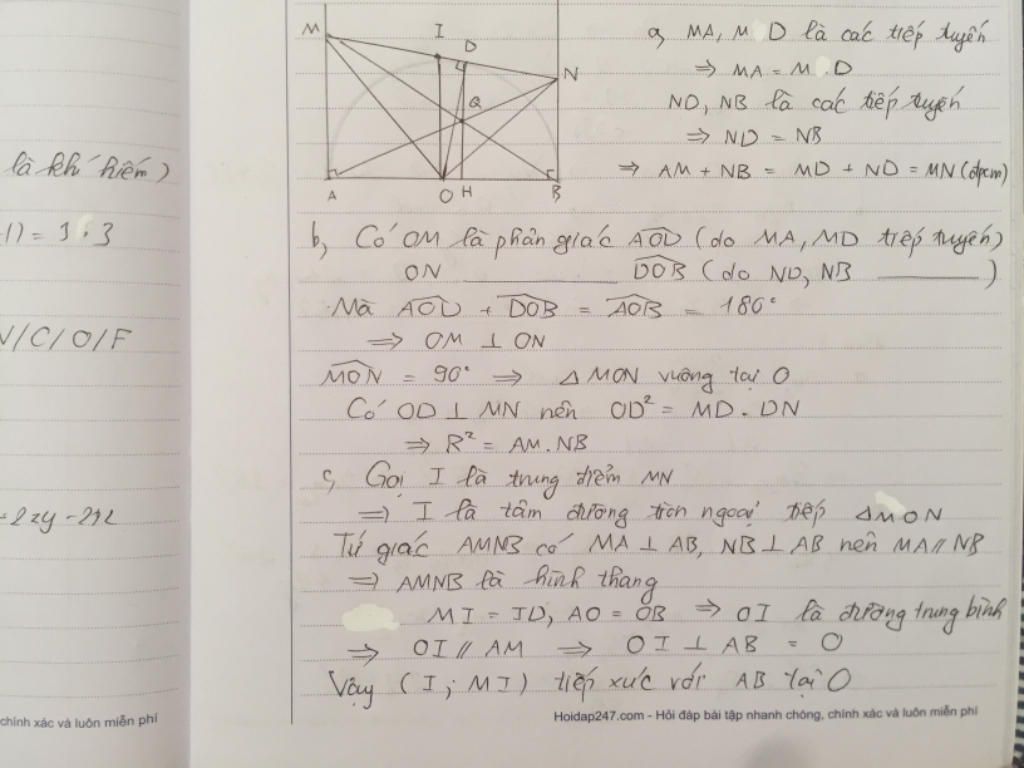 M I D N
Q
A O H B
a, MA, MD là các tiếp tuyến
⇒ MA = M.D
ND, NB là các tiếp tuyến
⇒ ND = NB
⇒ AM + NB = MD + ND = MN (đpcm)
b, Có OM là phân giác AOD (do MA, MD tiếp tuyến)
ON ______ DOB (do ND, NB ______)
Mà AOD + DOB = AOB = 180°
⇒ OM ⊥ ON
MON = 90° ⇒ Δ MON vuông tại O
Có OD ⊥ MN nên OD² = MD . DN
⇒ R² = AM.NB
c, Gọi I là trung điểm MN
⇒ I là tâm đường tròn ngoại tiếp ΔMON
Tứ giác AMNB có MA ⊥ AB, NB ⊥ AB nên MA // NB
⇒ AMNB là hình thang
MI = ID, AO = OB ⇒ OI là đường trung bình
⇒ OI // AM ⇒ OI ⊥ AB = O
Vậy (I; MI) tiếp xức với AB tại O
Hoidap247.com - Hỏi đáp bài tập nhanh chóng, chính xác và luôn miễn phí
là khí hiếm)
1) = 9.3
/C/O/F
chính xác và luôn miễn phí